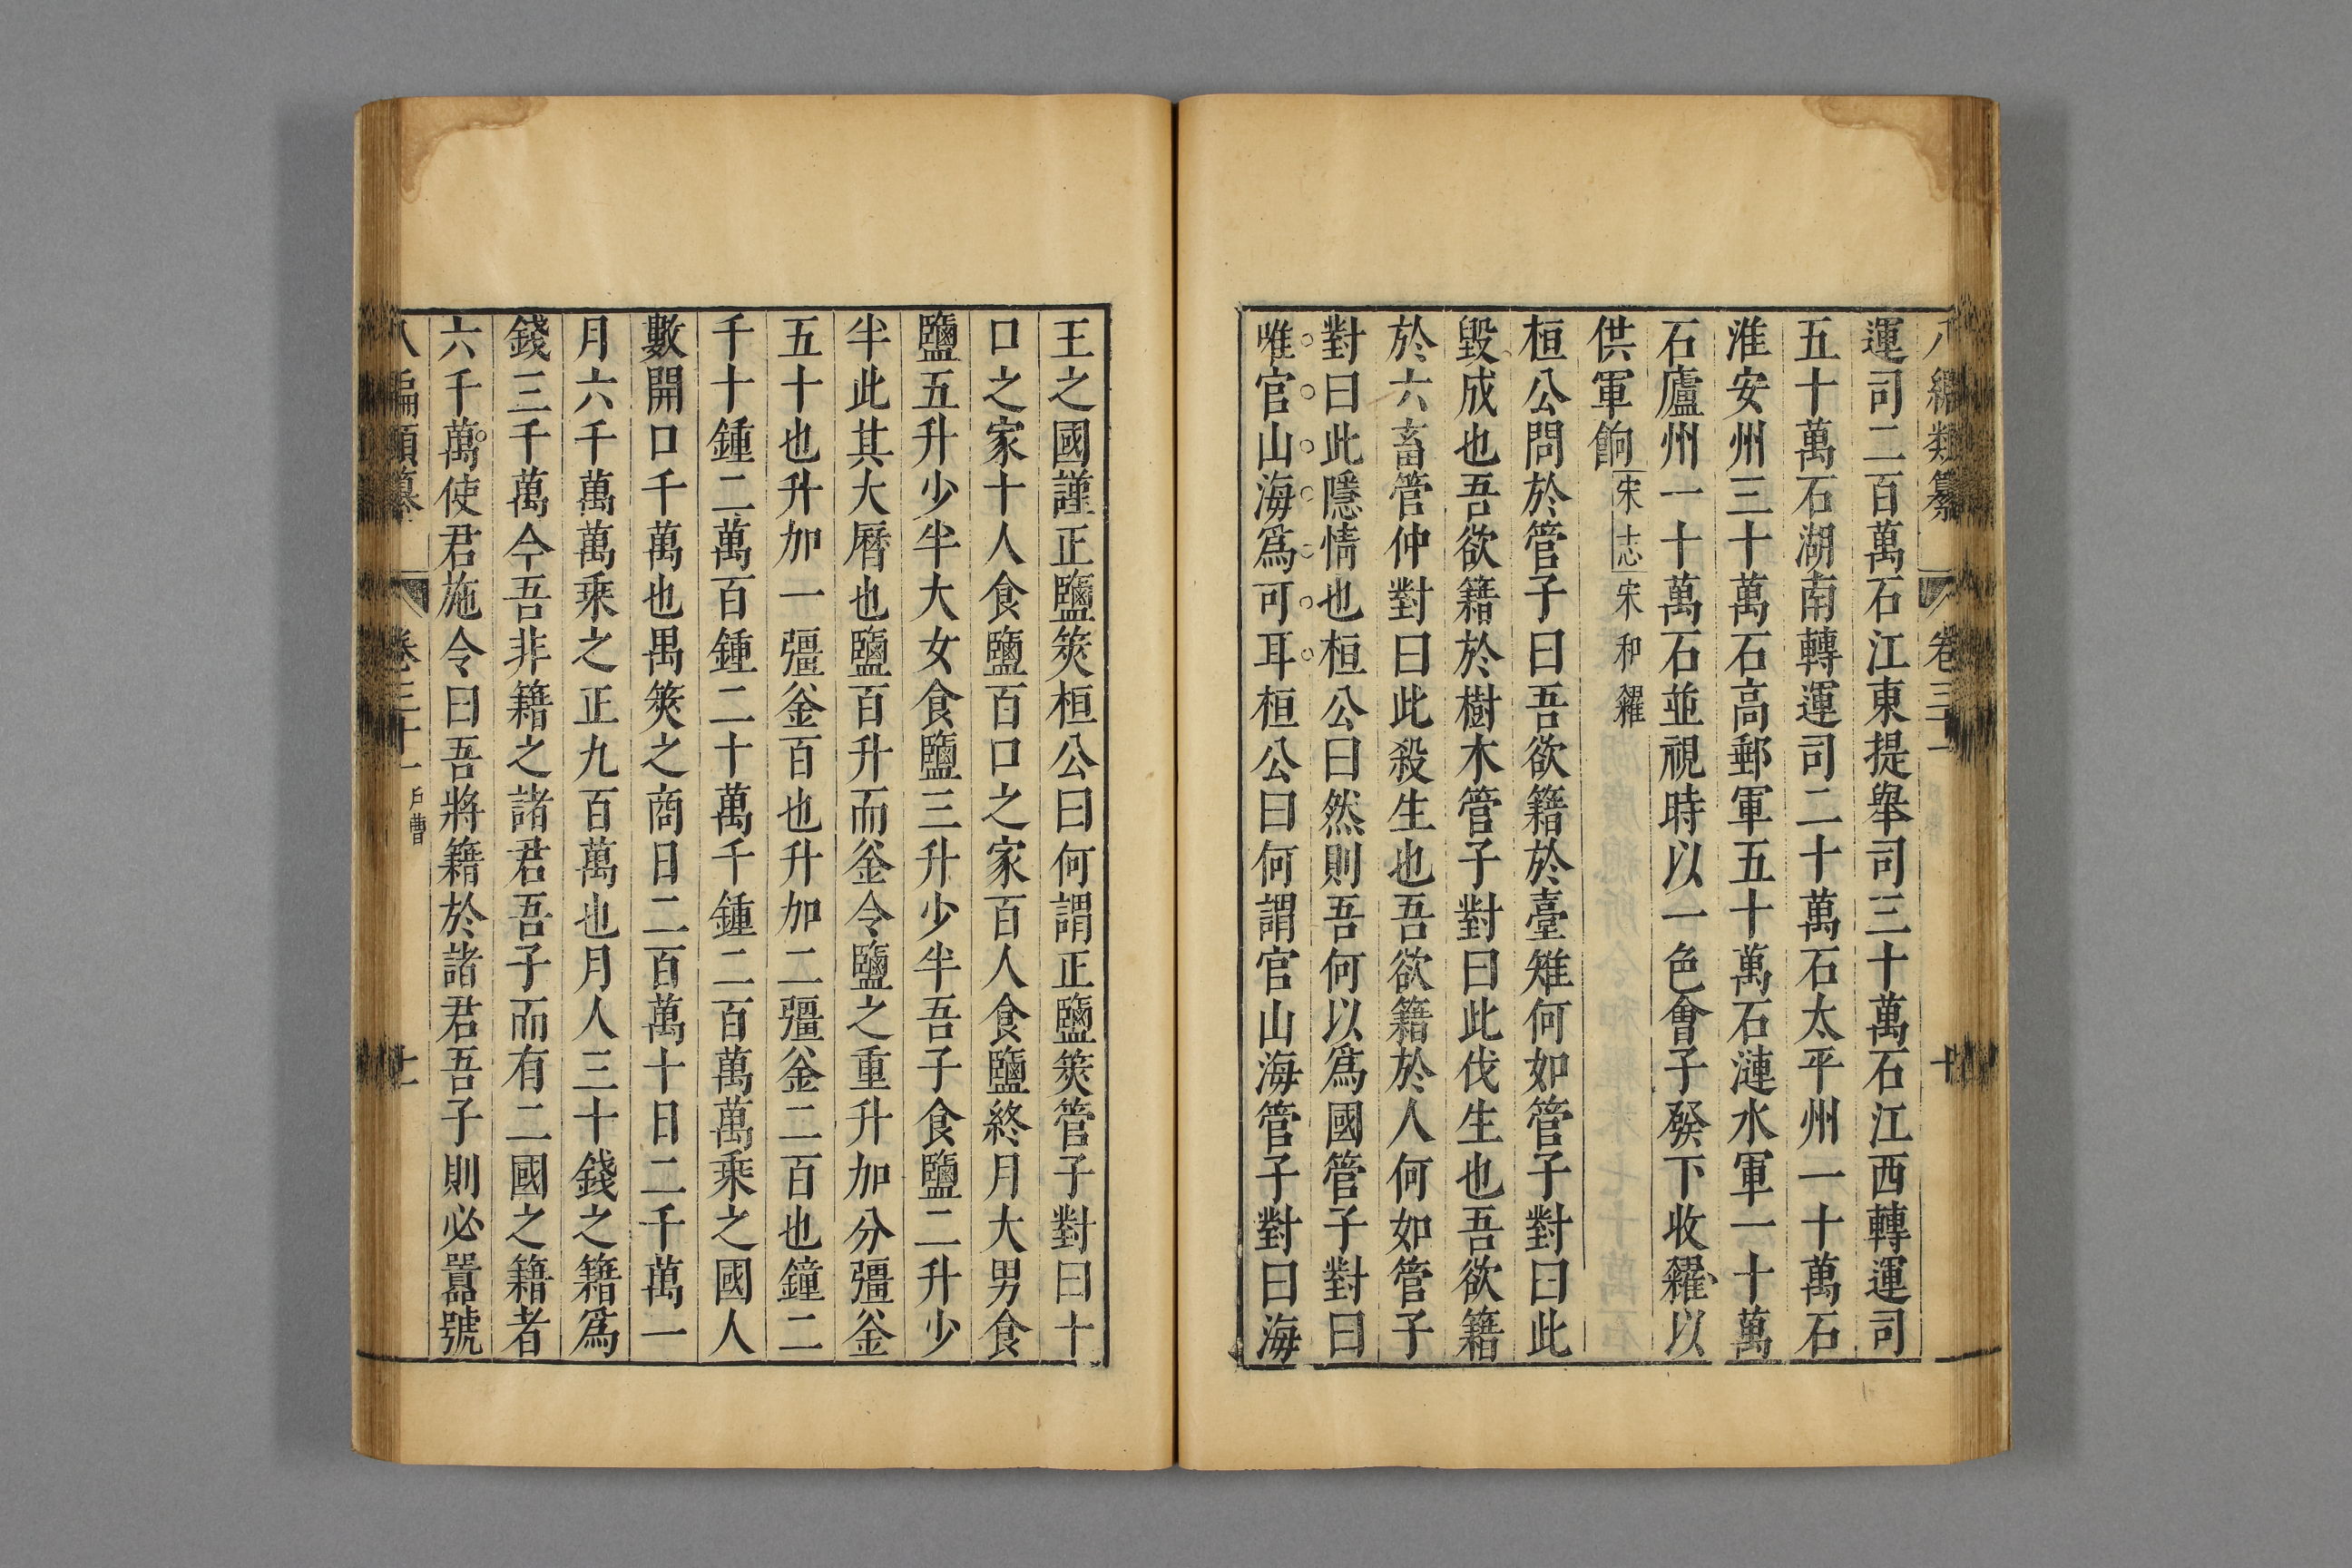 八編類纂 卷三十一 十
運司二百萬石江東提舉司三十萬石江西轉運司
五十萬石湖南轉運司二十萬石太平州一十萬石
淮安州三十萬石高郵軍五十萬石漣水軍一十萬
石廬州一十萬石並視時以一色會子發下收糴以
供軍餉宋志宋和糴
桓公問於管子曰吾欲籍於臺雉何如管子對曰此
毀成也吾欲籍於樹木管子對曰此伐生也吾欲籍
於六畜管仲對曰此殺生也吾欲籍於人何如管子
對曰此隱情也桓公曰然則吾何以爲國管子對曰
唯官山海爲可耳桓公曰何謂官山海管子對曰海
王之國謹正鹽筴桓公曰何謂正鹽筴管子對曰十
口之家十人食鹽百口之家百人食鹽終月大男食
鹽五升少半大女食鹽三升少半吾子食鹽二升少
半此其大曆也鹽百升而釡令鹽之重升加分彊釡
五十也升加一彊釡百也升加二彊釡二百也鐘二
千十鍾二萬百鍾二十萬千鍾二百萬萬乘之國人
數開口千萬也禺筴之商日二百萬十日二千萬一
月六千萬萬乘之正九百萬也月人三十錢之籍爲
錢三千萬今吾非籍之諸君吾子而有二國之籍者
六千萬使君施令曰吾將籍於諸君吾子則必嚚號
八編類纂 卷三十一 戶曹 十一